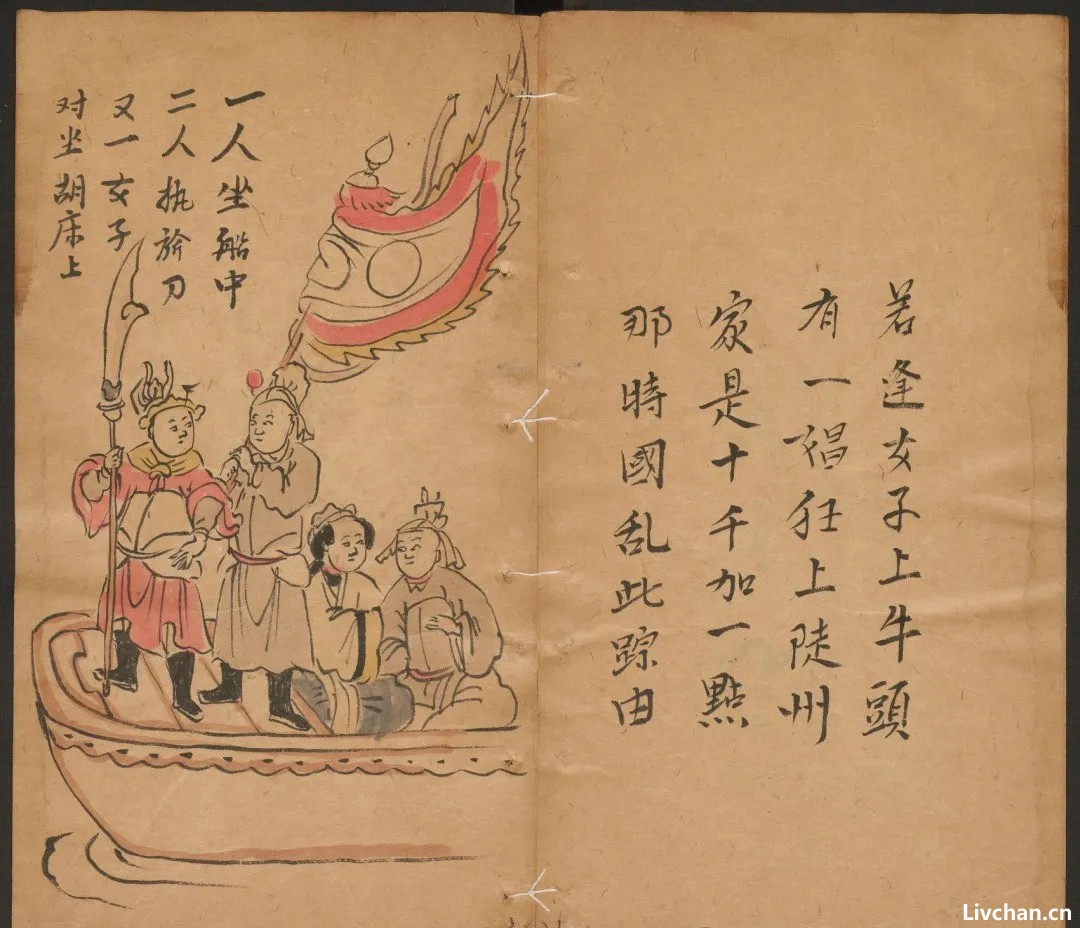 若逢女子上牛頭
有一猖狂上陡州
家是十千加一點
那時國乱此踪由
一人坐船中
二人执於刀
又一女子
对坐胡床上
Livchan.cn